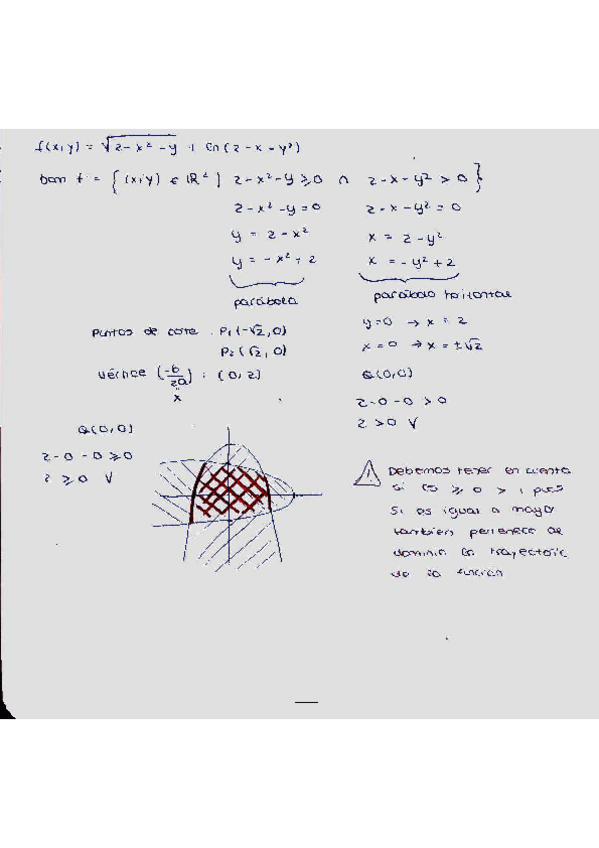 f(x,y) = √2-x²-y + ln(2-x-y²)
Dom f = { (x,y) ∈ ℝ² | 2-x²-y ≥ 0 ∩ 2-x-y² > 0 }
2-x²-y = 0
y = 2-x²
y = -x²+2
parábola
2-x-y² = 0
x = 2-y²
x = -y²+2
parábola horizontal
Puntos de corte : P₁(-√2,0)
P₂(√2,0)
Vértice (-b/2a) : (0,2)
x
y=0 → x = 2
x=0 → x = ±√2
Q(0,0)
2-0-0 > 0
2 > 0 V
Q(0,0)
2-0-0 ≥ 0
2 ≥ 0 V
! Debemos tener en cuenta
si es ≥ o > , pues
si es igual o mayor
también pertenece al
dominio la trayectoria
de la función